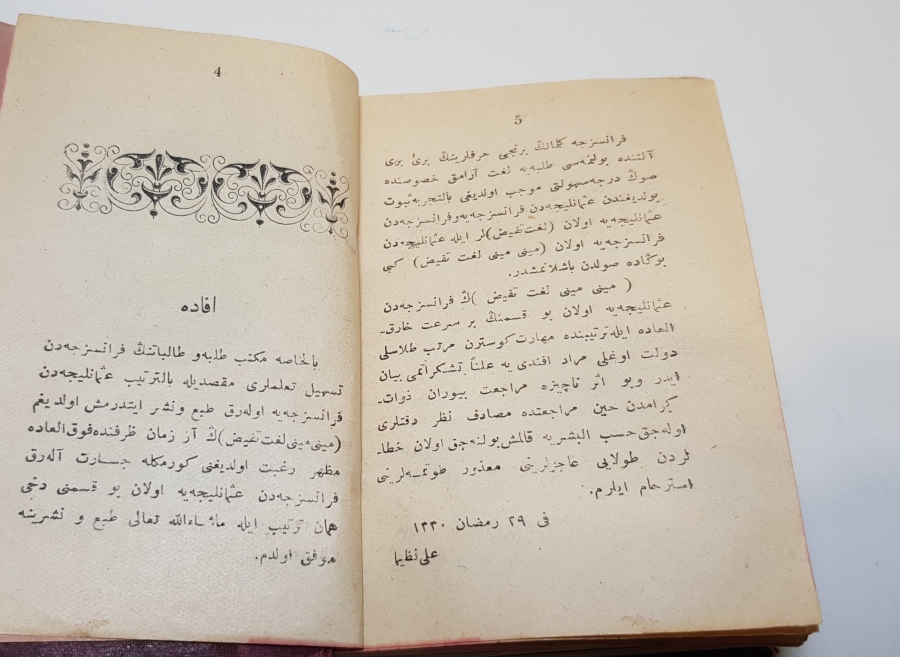 4
افاده
بالخاصه مكتب طلبه و طالباتنڭ فرانسزجه‌دن
تسهيل تعلملرى مقصديله بالترتيب عثمانليجه‌دن
فرانسزجه‌يه اوله‌رق طبع ونشر ايتدرمش اولديغم
(مينى مينى لغت تفيض)ڭ آز زمان ظرفنده فوق العاده
مظهر رغبت اولديغنى كورمكله جسارت آله‌رق
فرانسزجه‌دن عثمانليجه‌يه اولان بو قسمنى دخى
همان ترتيب ايله ماشاءالله تعالى طبع و نشرينه
موفق اولدم.
5
فرانسزجه كلماتڭ برنجى حرفلرينڭ برى برى
آلتنده بولنمه‌سى طلبه‌يه لغت آرامق خصوصنده
صوڭ درجه سهولتى موجب اولديغى بالتجربه ثبوت
بولديغندن عثمانليجه‌دن فرانسزجه‌يه و فرانسزجه‌دن
عثمانليجه‌يه اولان (لغت تفيض)لر ايله عثمانليجه‌دن
فرانسزجه‌يه اولان (مينى مينى لغت تفيض) كبى
بوڭاده صولدن باشلانمشدر.
(مينى مينى لغت تفيض)ڭ فرانسزجه‌دن
عثمانليجه‌يه اولان بو قسمنڭ بر سرعت خارق-
العاده ايله ترتيبنده مهارت كوسترن مرتب طلاسلى
دولت اوغلى مراد افندى يه علناً تشكراتمى بيان
ايدر وبو اثر ناچيزه مراجعت بيوران ذوات-
كرامدن حين مراجعتده مصادف نظر دقتلرى
اوله‌جق حسب البشريه قالمش بولنه‌جق اولان خطا-
لردن طولايى عاجزلرينى معذور طوتمه‌لرينى
استرحام ايلرم.
فى ٢٩ رمضان ١٣٣٠
على نظيما